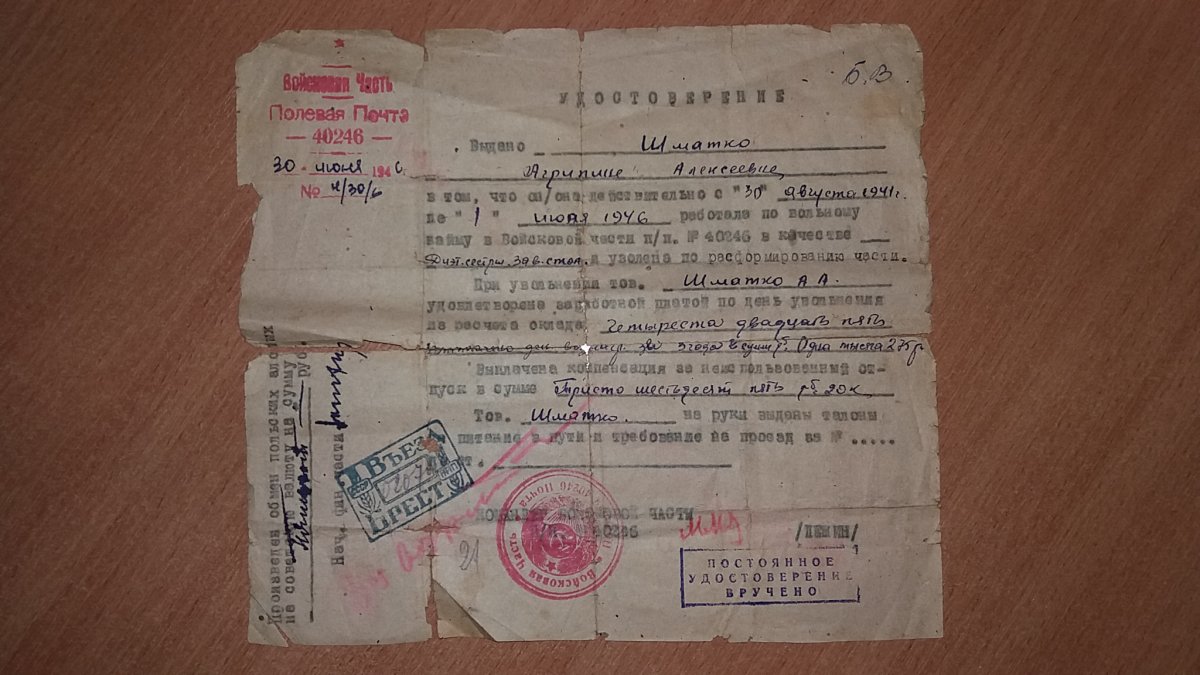 Войсковая Часть
Полевая Почта
— 40246 —
30 июня 1946
№ 4/30/6
Б.В.
УДОСТОВЕРЕНИЕ
Выдано Шматко
Агрипине Алексеевне
в том, что он/она действительно с "30" августа 1941 г.
по "1" июля 1946 работала по вольному
найму в Войсковой части п/п. № 40246 в качестве
Диэт.сестры зав.стол. и уволена по расформированию части.
При увольнении тов. Шматко А А.
удовлетворена заработной платой по день увольнения
из расчета оклада Четыреста двадцать пять
за 3 года в сумм Одна тысяча 275 р
Выплачена компенсация за неиспользованный от-
пуск в сумме Триста шестьдесят пять рб. 20 к
Тов. Шматко. на руки выданы талоны
питание в пути и требование на проезд за № .....
КОМАНДИР ВОЙСКОВОЙ ЧАСТИ
40246
/ЛЕНКИН/
ПОСТОЯННОЕ
УДОСТОВЕРЕНИЕ
ВРУЧЕНО
Войсковая Часть Полевая Почта 40246
ВЪЕЗД
БРЕСТ
21
Произведен обмен польских злотых
на советскую валюту на сумму
руб.
Нач. фин части